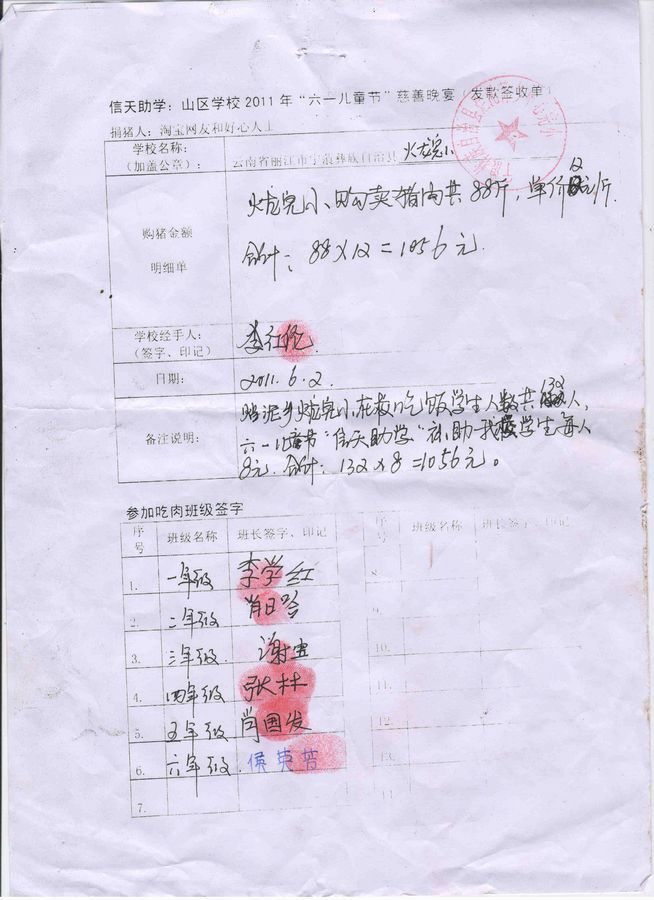 信天助学：山区学校2011年“六一儿童节”慈善晚宴（发款签收单）
捐猪人：淘宝网友和好心人士
学校名称：
（加盖公章）：
云南省丽江市宁蒗彝族自治县 火龙完小
购猪金额
明细单
火龙完小、购买猪肉共88斤，单价12元/斤.
合计：88×12＝1056元.
学校经手人：
（签字、印记）
李红
日期：
2011.6.2.
备注说明：
完小在校吃饭学生人数共132人，
六一儿童节“信天助学”补助我校学生每人
8元.合计：132×8＝1056元。
参加吃肉班级签字
序号 班级名称 班长签字、印记 序号 班级名称 班长签字、印记
1. 一年级 李学红 8.
2. 二年级 肖日 9.
3. 三年级 谢宝 10.
4. 四年级 张林 11.
5. 五年级 肖国发 12.
6. 六年级 侯英芳 13.
7.